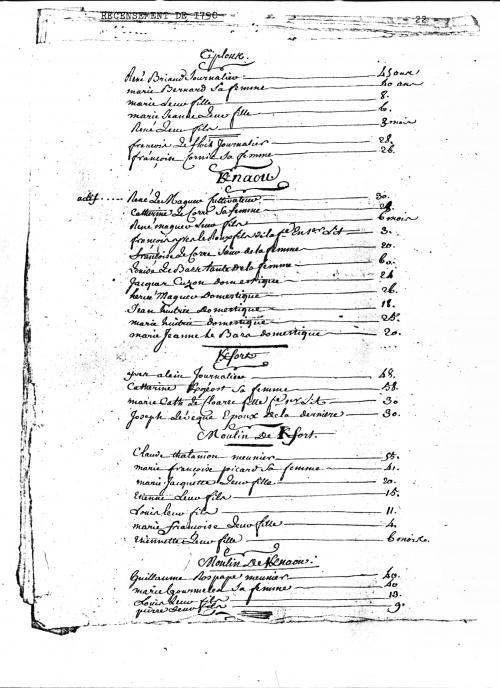 RECENSEMENT DE 1790 - 22 -
René Briand Journalier 45 ans
marie Bernard Sa femme 40 ans
marie Leur fille 8.
marie Jeanne Leur fille 6.
René Leur fils 3 mois
françois Le Journalier 28.
françoise Sa femme 26.
Kknaou
actif
René Le Maguer Cultivateur 30.
Catherine Le Corre Sa femme
René maguer Leur fils 6 mois
françois le Roux fils de la fe en 1er Lit 3.
françoise Le Corre Sœur de la femme 20.
Le Bars tante de la femme 60.
Jacques Cuzon domestique 24
hervé Maguer Domestique 26.
Jean Domestique 18.
marie domestique 25.
marie Jeanne Le Bara domestique 20.
Kfort
yves alain Journalier 48.
Catherine Sa femme 58.
marie Cath. Le floarec fille 30
Joseph Lévêque Epoux de la dernière 30.
Moulin De Kfort.
Claude thalamon meunier 55.
marie françoise picard Sa femme 41.
marie Jacquette Leur fille 20.
Etienne Leur fils 15.
Louis leur fils 11.
marie françoise Leur fille 4.
Etiennette Leur fille 6 mois.
Moulin De Kknaou.
Guillaume meunier 40.
marie Sa femme 40
Louis Leur fils 13.
pierre Leur fils 9.